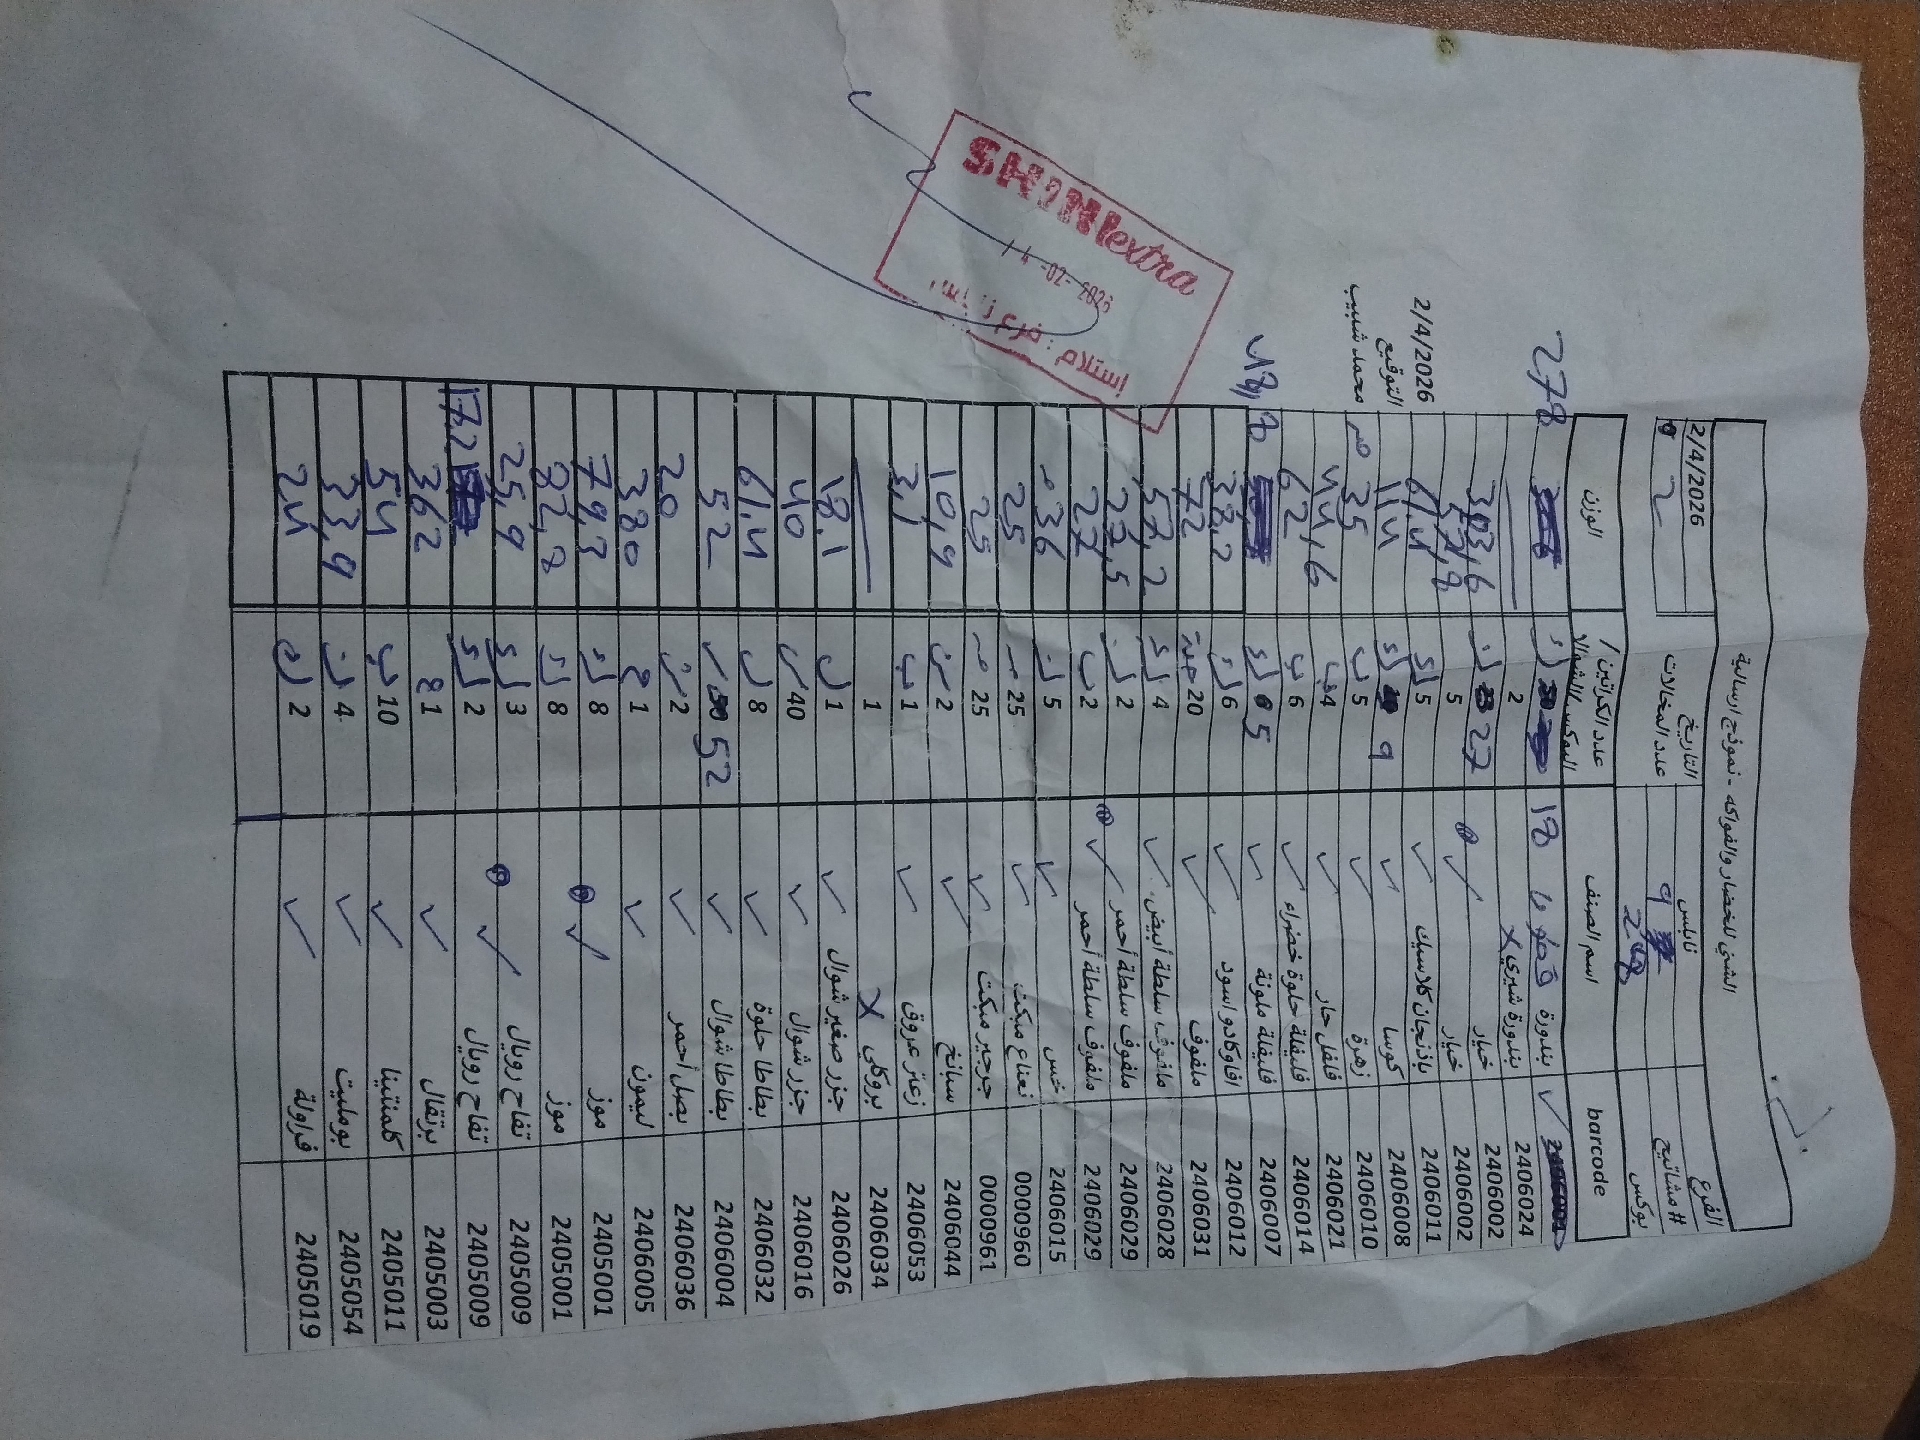 الشني للخضار والفواكه - نموذج ارسالية
الفرع نابلس التاريخ 2/4/2026
# مشاتيح 9 عدد المخالات 2
بوكس
barcode اسم الصنف عدد الكراتين / البوكس / الشوال الوزن
بندورة 18 278
2406024 بندورة شيري X 2
2406002 خيار 27 303,6
2406002 خيار 5 57,8
2406011 باذنجان كلاسيك 5 61,4
2406008 كوسا 9 114
2406010 زهرة 5 35
2406021 فلفل حار 4 44,6
2406014 فليفلة حلوة خضراء 6 62
2406007 فليفلة ملونة 5
2406012 افوكادو اسود 6 38,2
2406031 ملفوف 20 حبة 72
2406028 ملفوف سلطة أبيض 4 57,2
2406029 ملفوف سلطة أحمر 2 27,5
2406029 ملفوف سلطة أحمر 2 27
2406015 خس 5 36
0000960 نعناع مبكت 25 25
0000961 جرجير مبكت 25 25
2406044 سبانخ 2 10,9
2406053 زعتر عروق 1 3,1
2406034 بروكلي X 1
2406026 جزر صغير شوال 1 18,1
2406016 جزر شوال 40 40
2406032 بطاطا حلوة 8 61,4
2406004 بطاطا شوال 52 52
2406036 بصل أحمر 2 20
2406005 ليمون 1 380
2405001 موز 8 79,3
2405001 موز 8 82,8
2405009 تفاح رويال 3 25,9
2405009 تفاح رويال 2 17,2
2405003 برتقال 1 362
2405011 كلمنتينا 10 54
2405054 بومليت 4 33,9
2405019 فراولة 2 24
2/4/2026
التوقيع
محمد شبيب
SHINIextra
14-02-2026
إستلام :